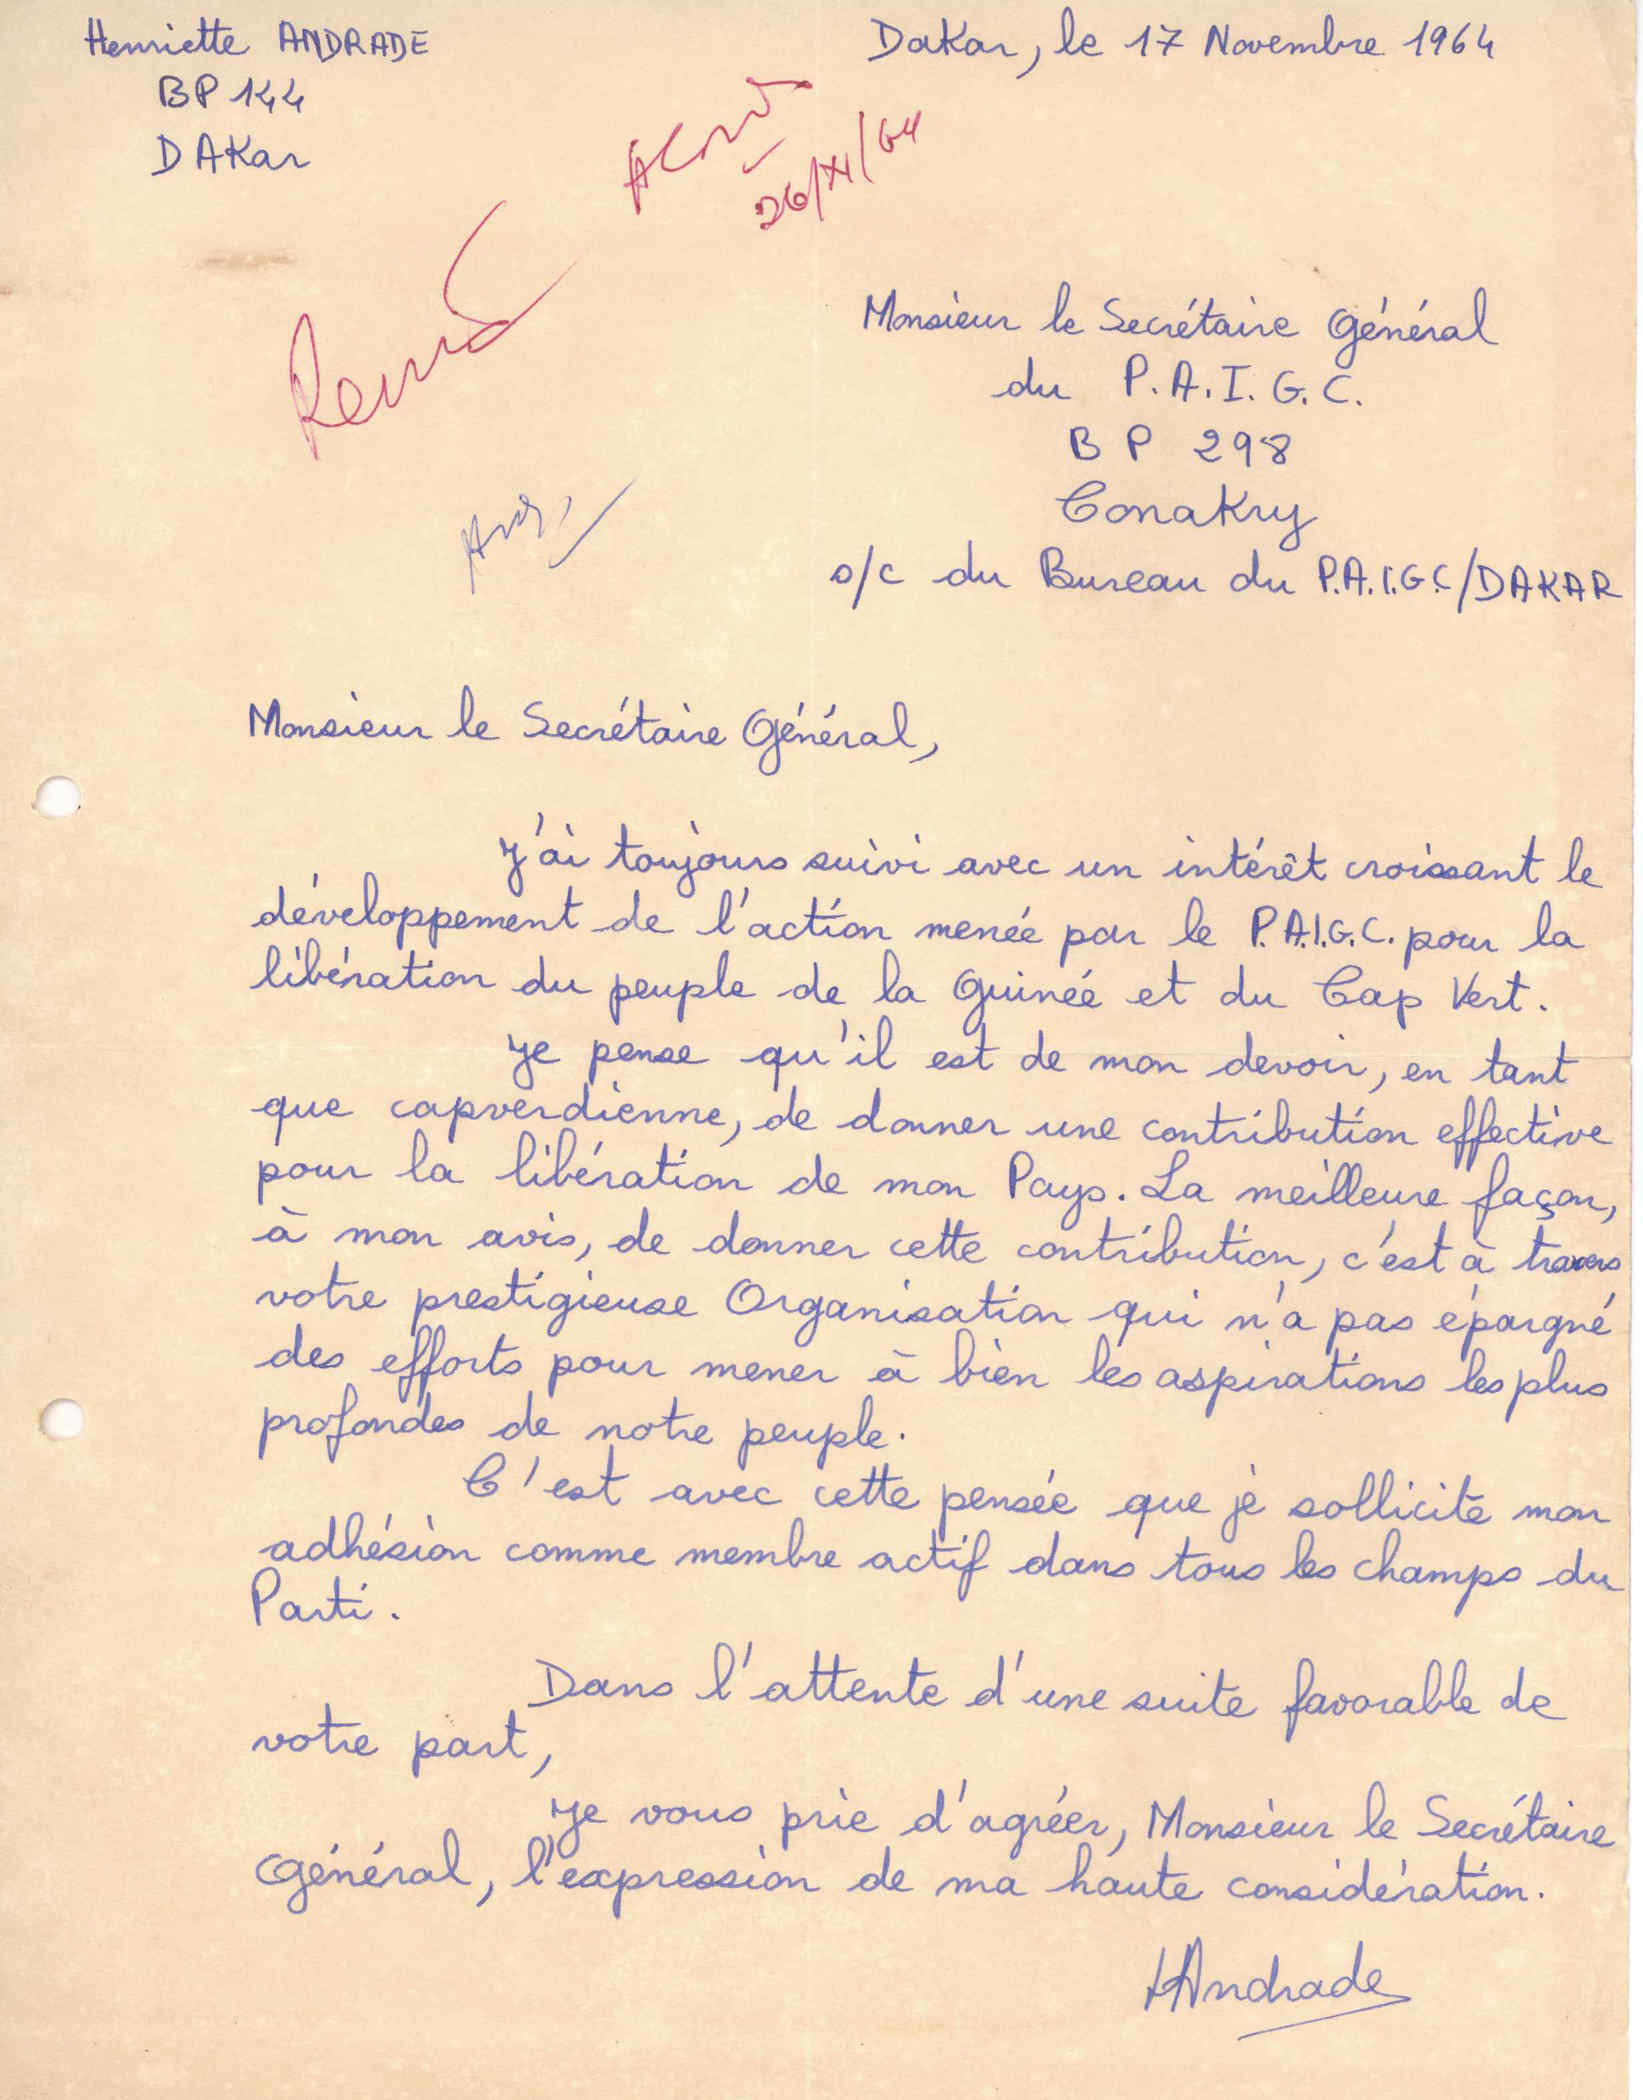 Henriette ANDRADE
BP 144
DAKar
Dakar, le 17 Novembre 1964
26/XI/64
Monsieur le Secrétaire Général
du P.A.I.G.C.
BP 298
Conakry
s/c du Bureau du P.A.I.G.C/DAKAR
Monsieur le Secrétaire Général,
J'ai toujours suivi avec un intérêt croissant le
développement de l'action menée par le P.A.I.G.C. pour la
libération du peuple de la Guinée et du Cap Vert.
Je pense qu'il est de mon devoir, en tant
que capverdienne, de donner une contribution effective
pour la libération de mon Pays. La meilleure façon,
à mon avis, de donner cette contribution, c'est à travers
votre prestigieuse Organisation qui n'a pas épargné
des efforts pour mener à bien les aspirations les plus
profondes de notre peuple.
C'est avec cette pensée que je sollicite mon
adhésion comme membre actif dans tous les champs du
Parti.
Dans l'attente d'une suite favorable de
votre part,
Je vous prie d'agréer, Monsieur le Secrétaire
Général, l'expression de ma haute considération.
HAndrade